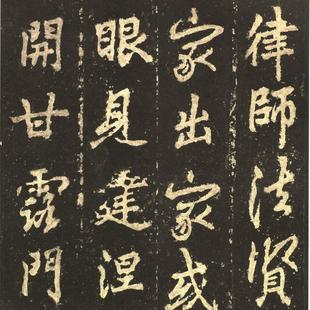 律師法賓
家出家或
眼見建涅
開甘露門